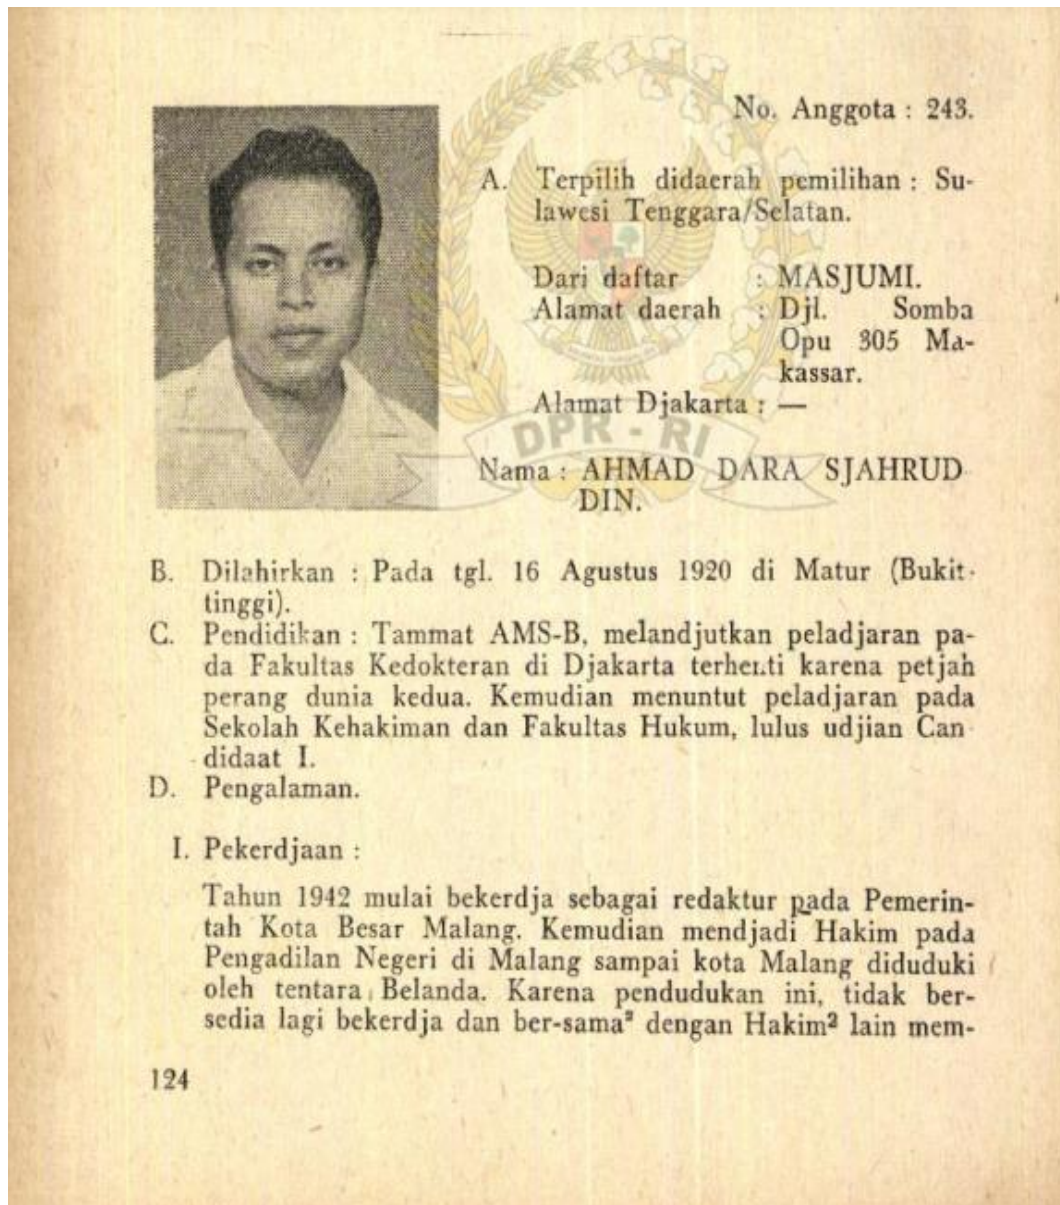 No. Anggota : 243.
A. Terpilih didaerah pemilihan : Su-
lawesi Tenggara/Selatan.
Dari daftar : MASJUMI.
Alamat daerah : Djl. Somba
Opu 305 Ma-
kassar.
Alamat Djakarta : —
DPR - RI
Nama : AHMAD DARA SJAHRUD
DIN.
B. Dilahirkan : Pada tgl. 16 Agustus 1920 di Matur (Bukit-
tinggi).
C. Pendidikan : Tammat AMS-B, melandjutkan peladjaran pa-
da Fakultas Kedokteran di Djakarta terhenti karena petjah
perang dunia kedua. Kemudian menuntut peladjaran pada
Sekolah Kehakiman dan Fakultas Hukum, lulus udjian Can-
didaat I.
D. Pengalaman.
I. Pekerdjaan :
Tahun 1942 mulai bekerdja sebagai redaktur pada Pemerin-
tah Kota Besar Malang. Kemudian mendjadi Hakim pada
Pengadilan Negeri di Malang sampai kota Malang diduduki
oleh tentara Belanda. Karena pendudukan ini, tidak ber-
sedia lagi bekerdja dan ber-sama² dengan Hakim² lain mem-
124